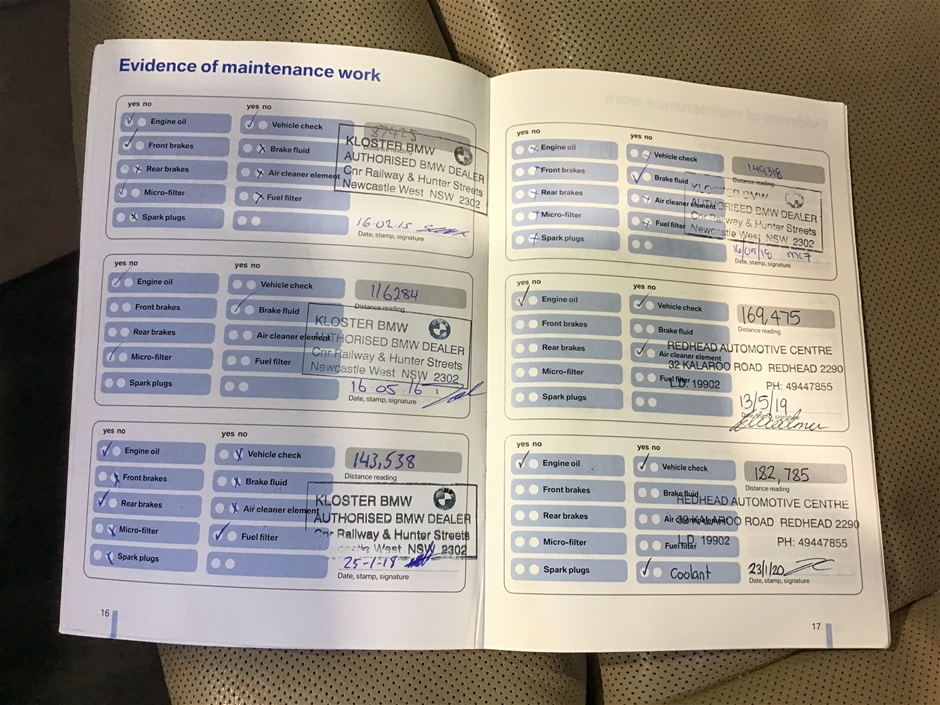 Evidence of maintenance work
yes no
yes no
Engine oil
Vehicle check
87425
Front brakes
Brake fluid
KLOSTER BMW
AUTHORISED BMW DEALER
Rear brakes
Air cleaner element
Cnr Railway & Hunter Streets
Newcastle West NSW 2302
Micro-filter
Fuel filter
Spark plugs
16.02.15
Date, stamp, signature
yes no
yes no
Engine oil
Vehicle check
116284
Distance reading
Front brakes
Brake fluid
KLOSTER BMW
AUTHORISED BMW DEALER
Rear brakes
Air cleaner element
Cnr Railway & Hunter Streets
Newcastle West NSW 2302
Micro-filter
Fuel filter
Spark plugs
16 05 16
Date, stamp, signature
yes no
yes no
Engine oil
Vehicle check
143,538
Distance reading
Front brakes
Brake fluid
KLOSTER BMW
AUTHORISED BMW DEALER
Rear brakes
Air cleaner element
Cnr Railway & Hunter Streets
West NSW 2302
Micro-filter
Fuel filter
Spark plugs
25-1-18
Date, stamp, signature
16
yes no
yes no
Engine oil
Vehicle check
149318
Distance reading
Front brakes
Brake fluid
KLOSTER BMW
AUTHORISED BMW DEALER
Rear brakes
Air cleaner element
Cnr Railway & Hunter Streets
Newcastle West NSW 2302
Micro-filter
Fuel filter
Spark plugs
16/05/18
Date, stamp, signature
yes no
yes no
Engine oil
Vehicle check
169,475
Distance reading
Front brakes
Brake fluid
Rear brakes
Air cleaner element
REDHEAD AUTOMOTIVE CENTRE
32 KALAROO ROAD REDHEAD 2290
Micro-filter
Fuel filter
L.D. 19902
PH: 49447855
Spark plugs
13/5/19
Date, stamp, signature
yes no
yes no
Engine oil
Vehicle check
182,785
Distance reading
Front brakes
Brake fluid
REDHEAD AUTOMOTIVE CENTRE
Rear brakes
Air cleaner element
32 KALAROO ROAD REDHEAD 2290
Micro-filter
Fuel filter
L.D. 19902
PH: 49447855
Spark plugs
Coolant
23/1/20
Date, stamp, signature
17